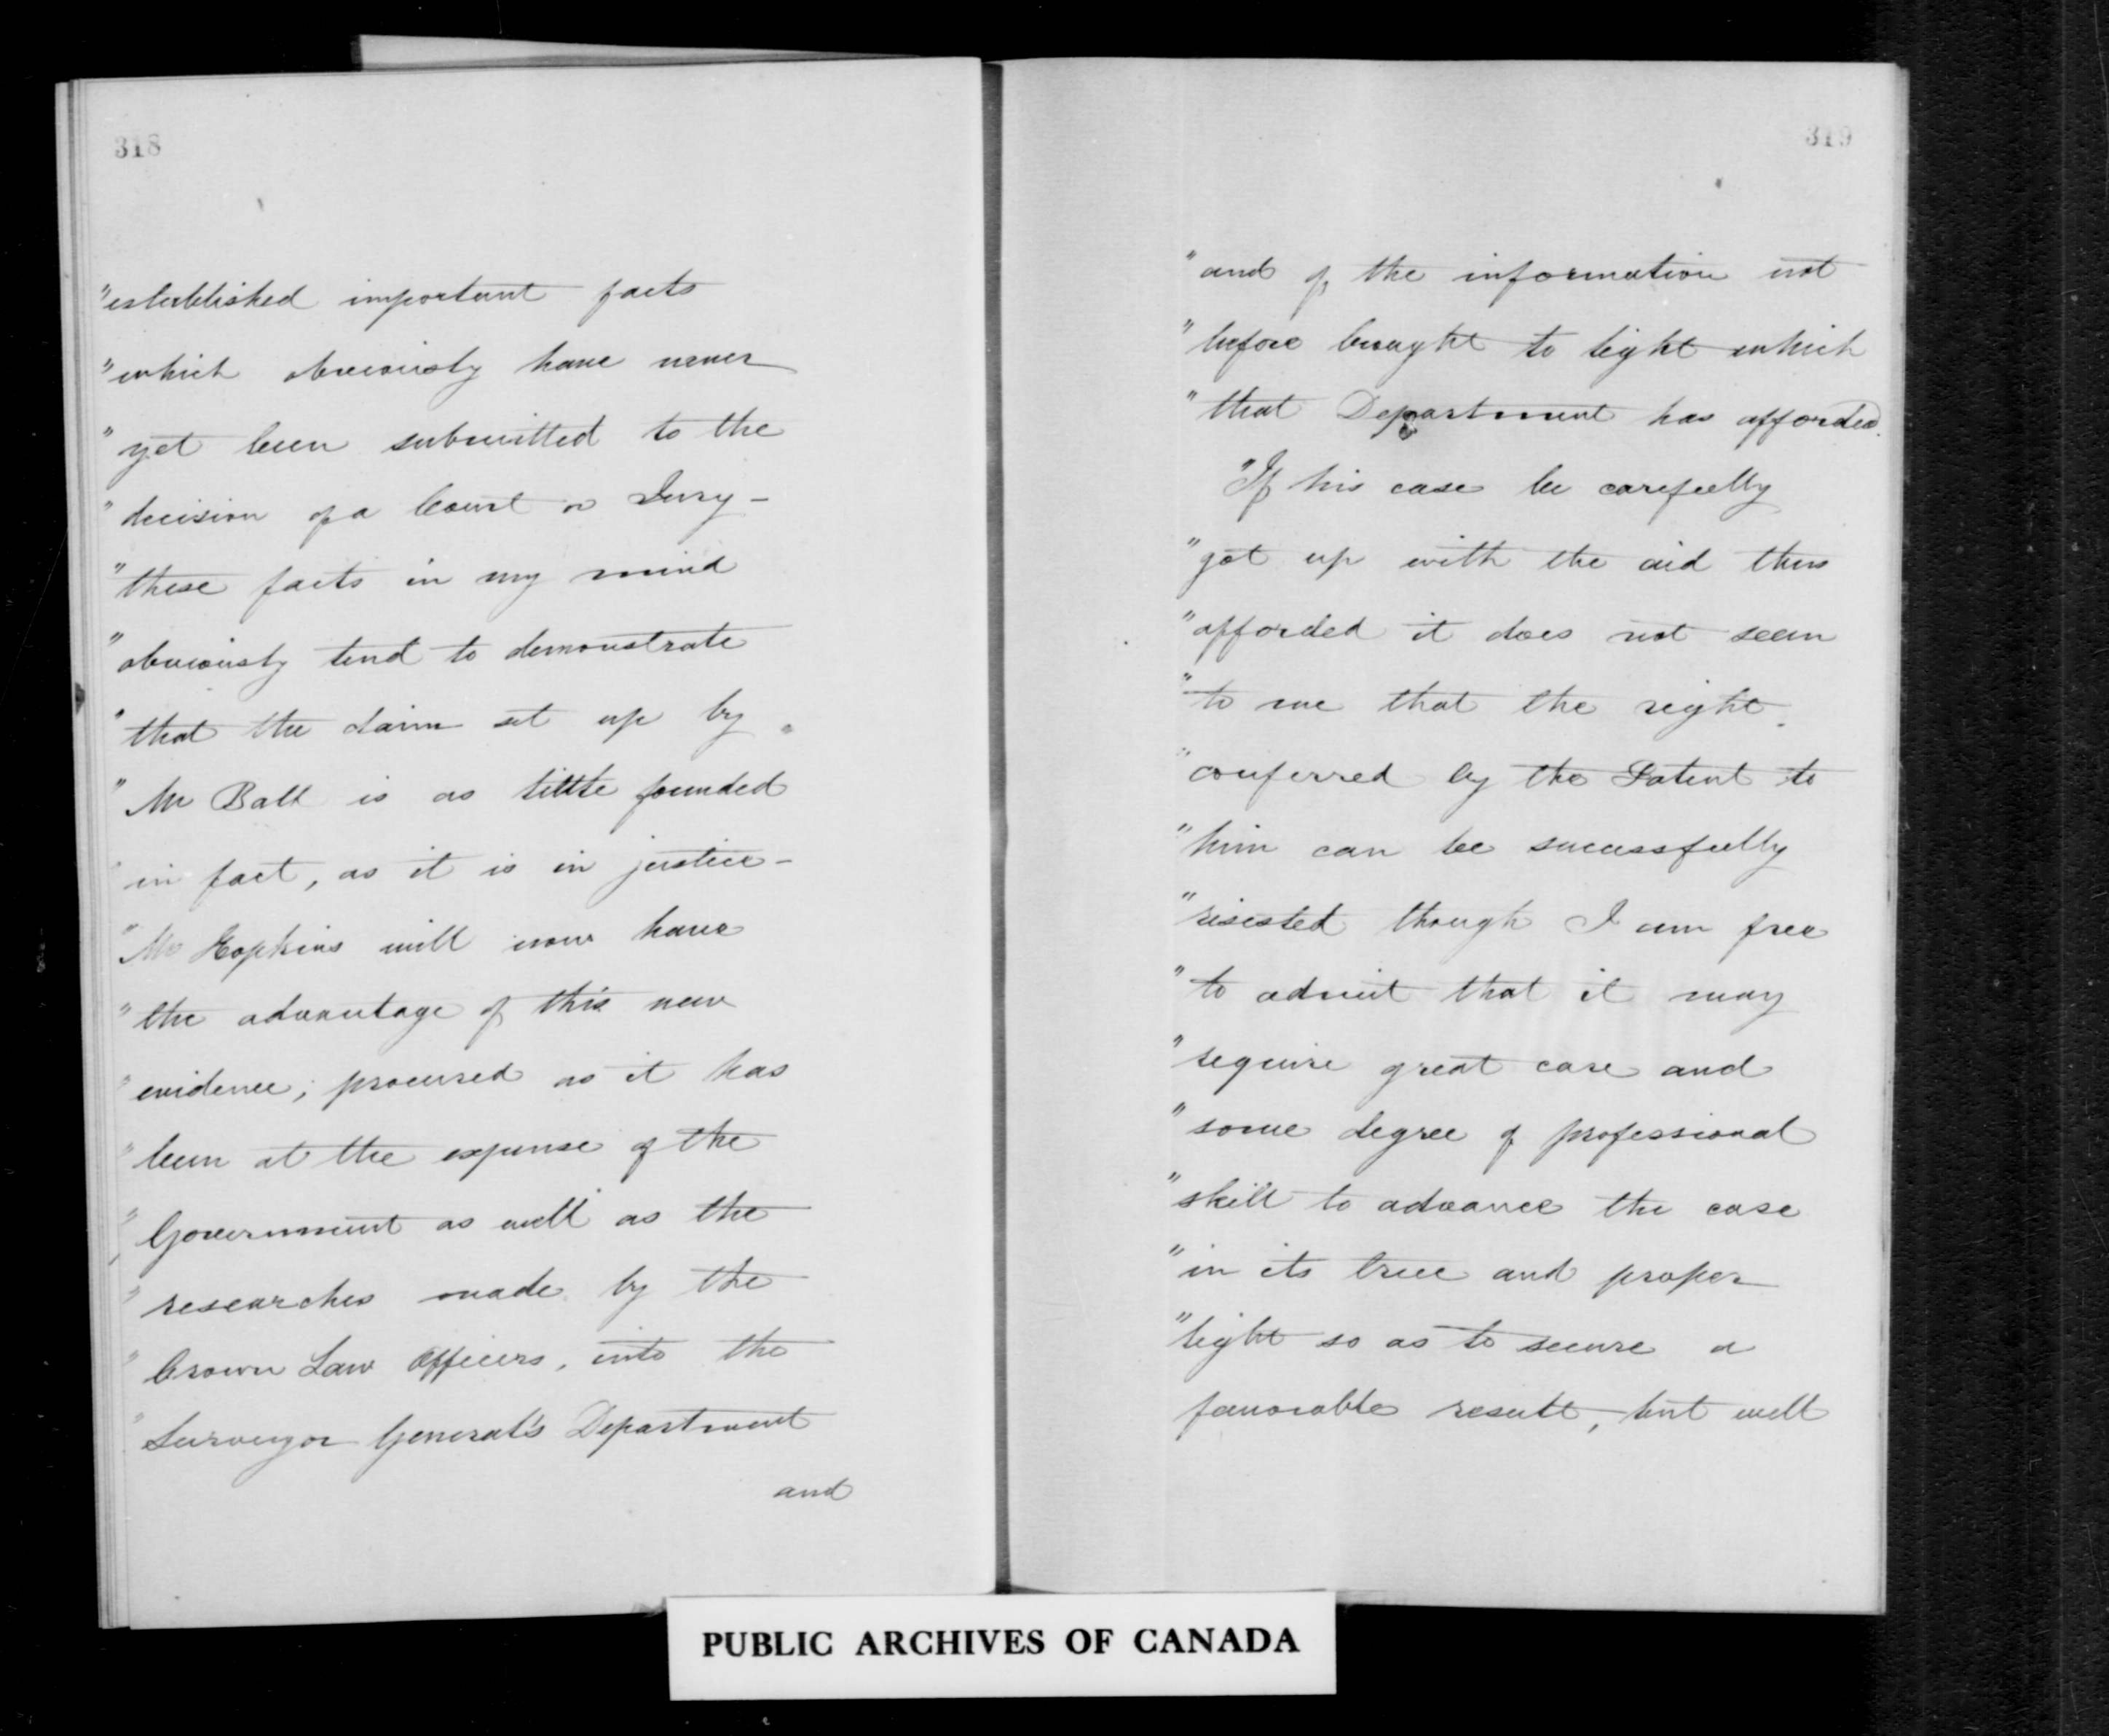 318
"established important facts
"which obviously have never
"yet been submitted to the
"decision of a Court or Jury -
"these facts in my mind
"obviously tend to demonstrate
"that the claim set up by "
"Mr Ball is as little founded
"in fact, as it is in justice -
"Mr Hopkins will now have
"the advantage of this new
"evidence, procured as it has
"been at the expense of the
"Government as well as the
"researches made by the
"Crown Law Officers, into the
"Surveyor General's Department
and
319
"and of the information not
"before brought to light which
"that Department has afforded.
"If his case be carefully
"got up with the aid thus
"afforded it does not seem
"to me that the right
"conferred by the Patent to
"him can be sucessfully
"resisted though I am free
"to admit that it may
"require great care and
"some degree of professional
"skill to advance the case
"in its true and proper
"light so as to secure a
favorable result, but well
PUBLIC ARCHIVES OF CANADA